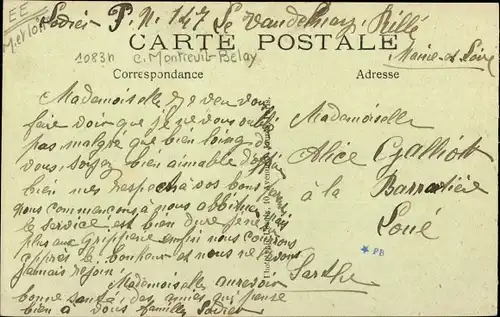 EE
M. et Loir
Sodier P. N. 147 Le Vaudelnay Rillé
CARTE POSTALE
Maine et Loire
1083h C. Montreuil-Belay
Correspondance
Adresse
Mademoiselle Je veu vous
faire voir que je ne vous oubli
pas malgré que bien loing de
vous, soyez bien aimable d'offrir
bien mes Respects à vos bons
nous commençons à nous abituer
le service est bien dure
plus que
après le bonheur et nous ne
jamais rejoin!
Mademoiselle aurevoir
bonne santé, des amies qui pense
bien à vous famille Sodier
Mademoiselle
Alice Galliot
à la
Barratière
Loué
Sarthe
* PB